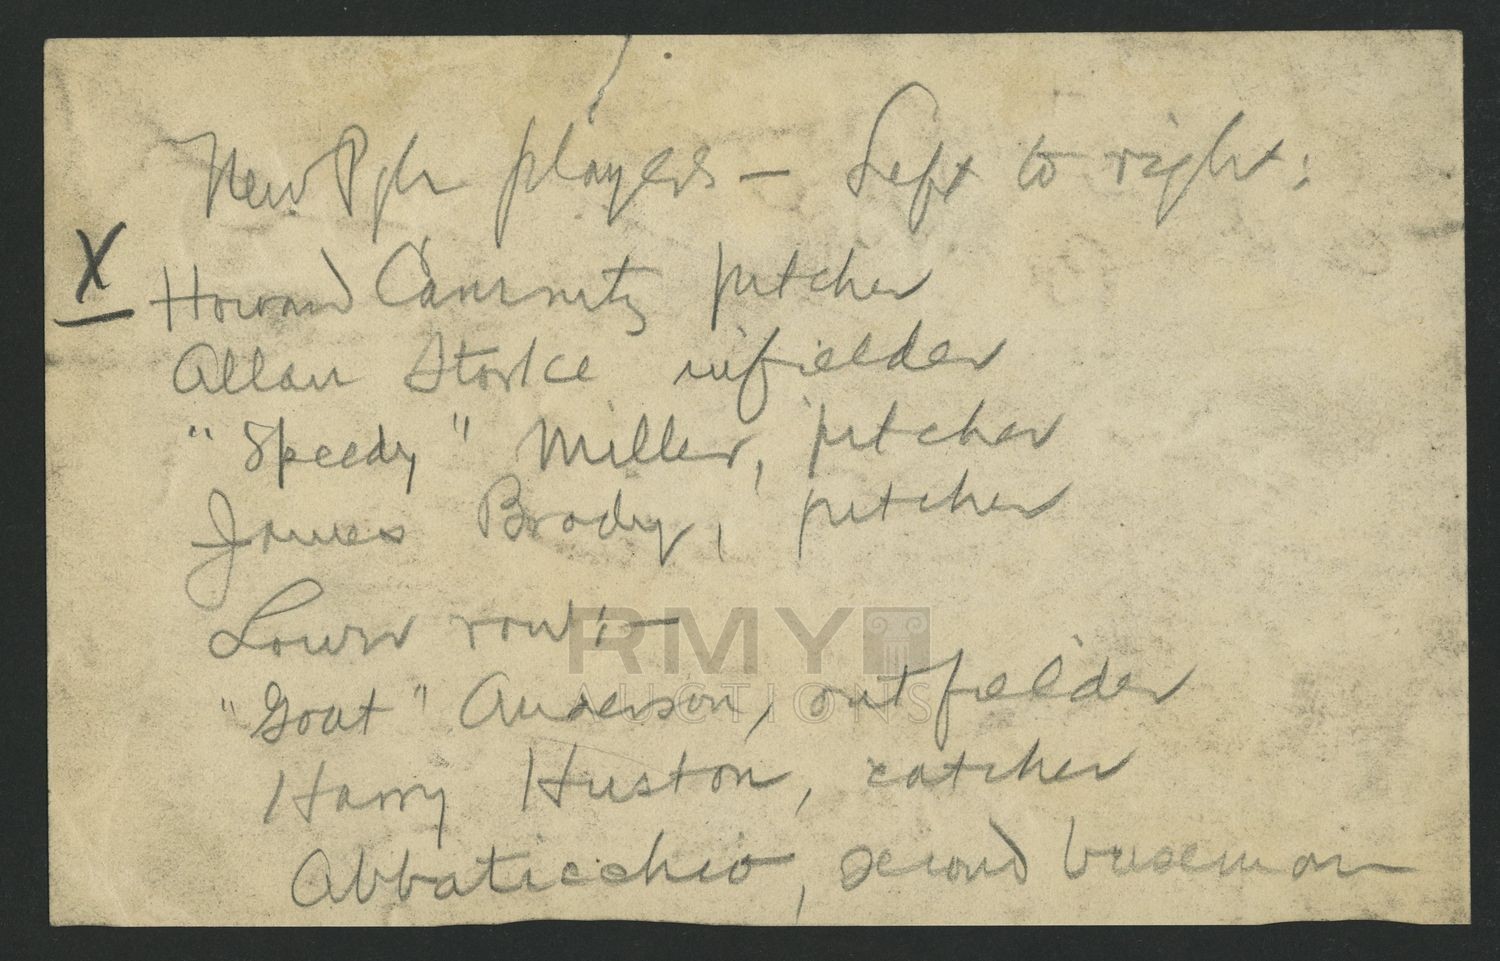 New Pgh players - Left to right:
X Howard Camnitz pitcher
Allan Storke infielder
"Speedy" Miller, pitcher
James Brady, pitcher
Lower row:-
"Goat" Anderson, outfielder
Harry Huston, catcher
Abbaticchio, second baseman
RMY
AUCTIONS